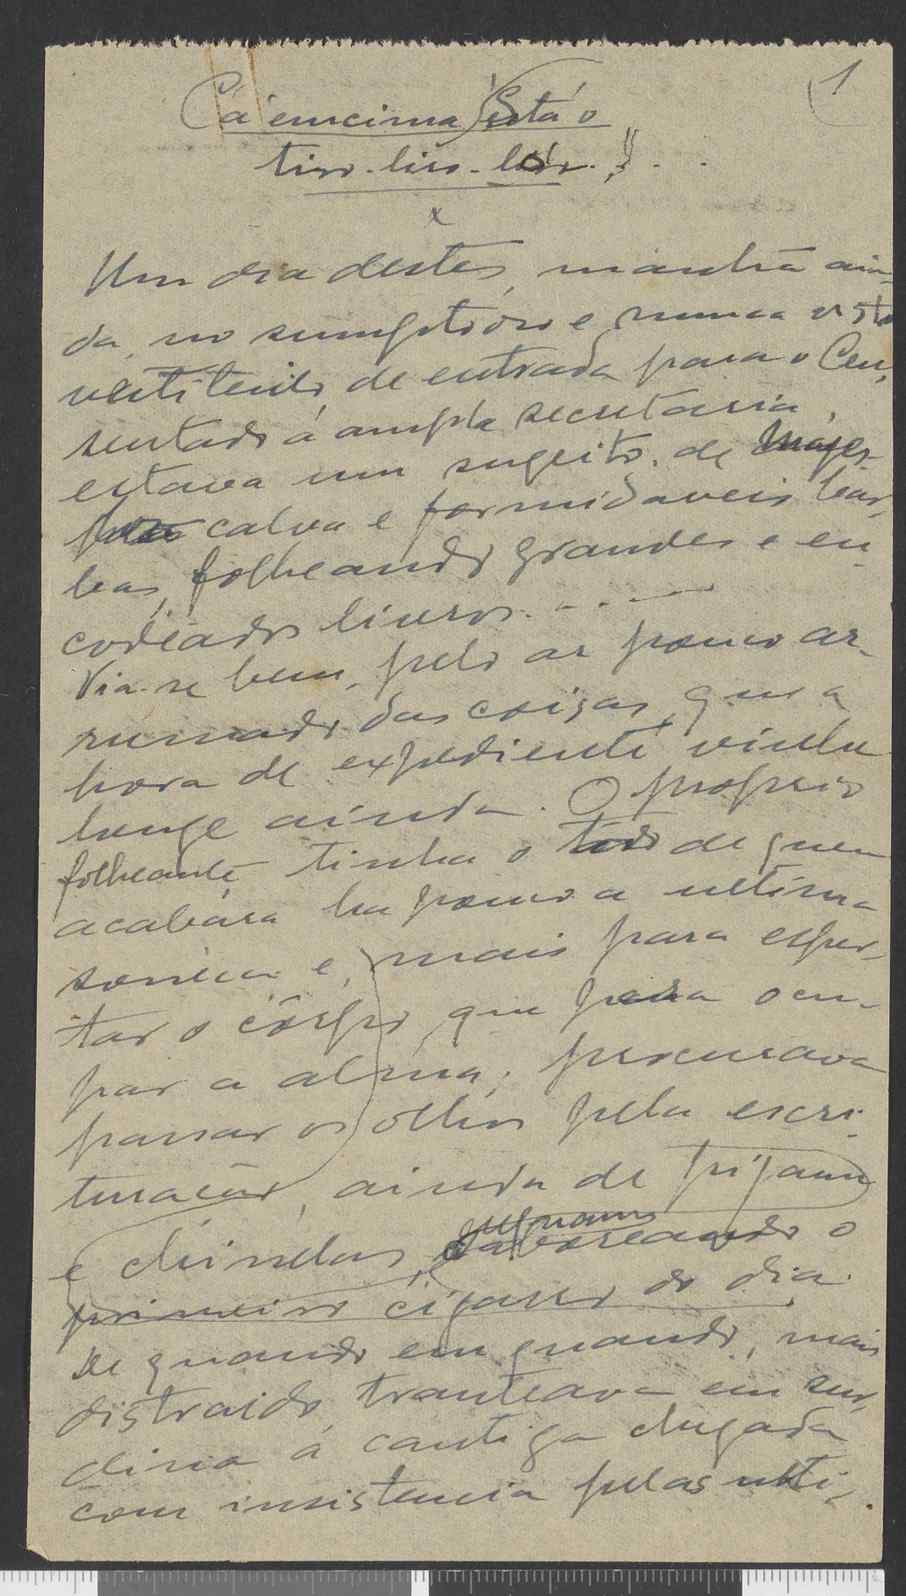 1
Cá emcima está o
tiro-liro-ló...
x
Um dia destes, manhã ain-
da, no sumptuoso e nunca visto
vestibulo de entrada para o Ceu,
sentado á ampla secretaria,
estava um sugeito, de
calva e formidaveis bar-
bas, folheando grandes e en-
codeados livros....
Via-se bem, pelo ar pouco ar-
rumado das coizas, que a
hora de expediente vinha
longe ainda. O proprio
folheante tinha o todo de quem
acabára ha pouco a ultima
soneca e, mais para esper-
tar o côrpo, que para ocu-
par a alma, procurava
passar os olhos pela escri-
turação, ainda de pijama
e chinelas, saboreando o
primeiro cigarro do dia.
De quando em quando, mais
distraido, trauteava em sur-
dina a cantiga chegada
com insistencia pelas ulti-